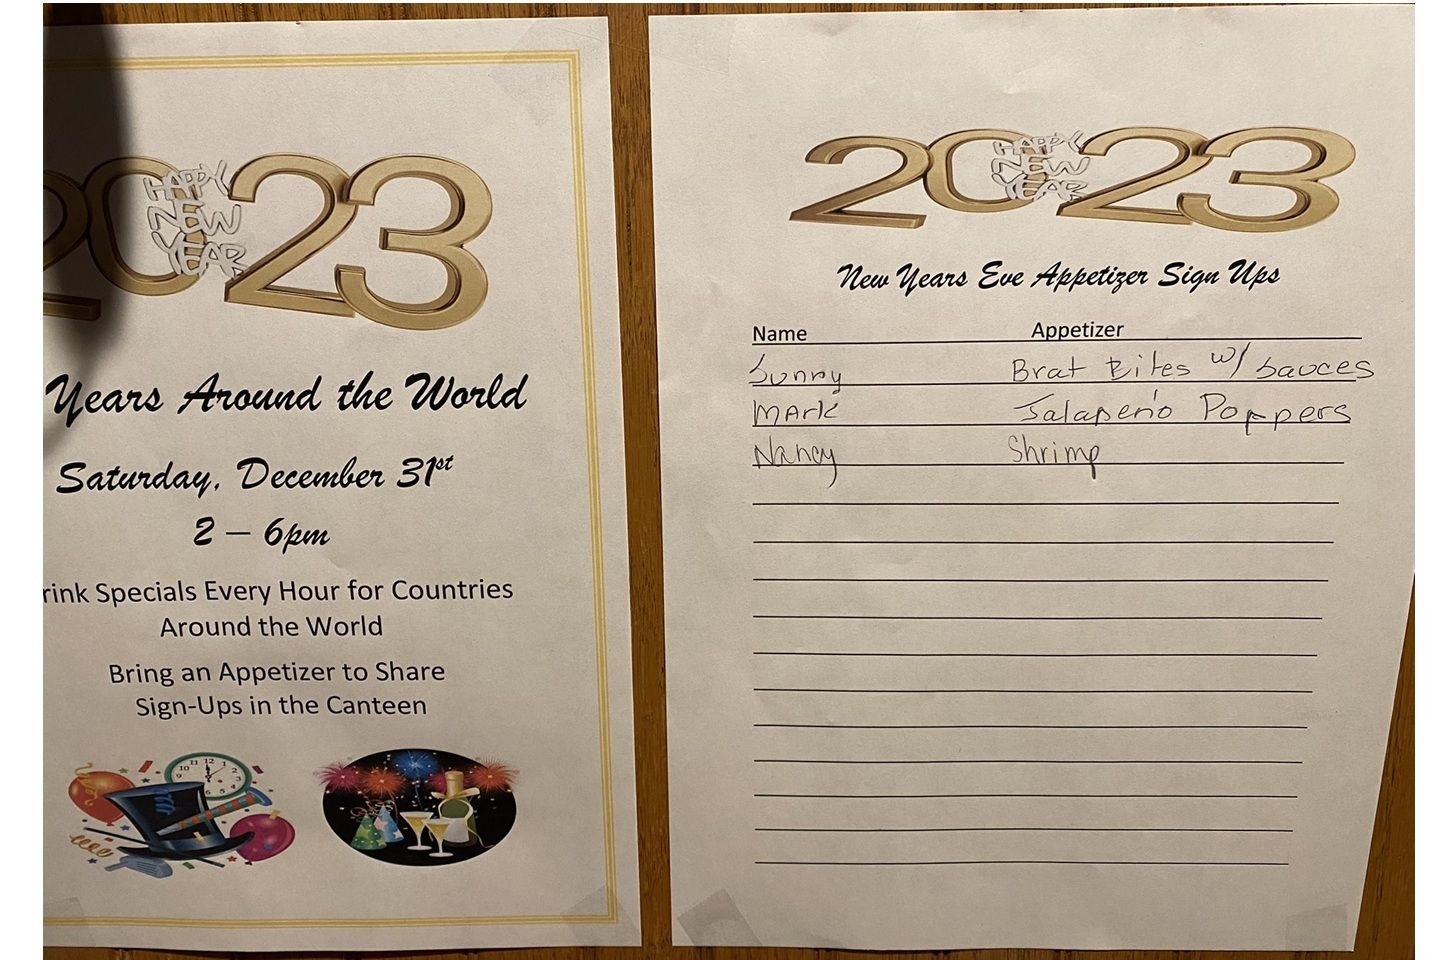 2023
HAPPY
NEW
YEAR
Years Around the World
Saturday, December 31st
2 – 6pm
rink Specials Every Hour for Countries
Around the World
Bring an Appetizer to Share
Sign-Ups in the Canteen
2023
HAPPY
NEW
YEAR
New Years Eve Appetizer Sign Ups
Name Appetizer
Sunny Brat Bites w/ Sauces
MArk Jalapeño Poppers
Nancy Shrimp